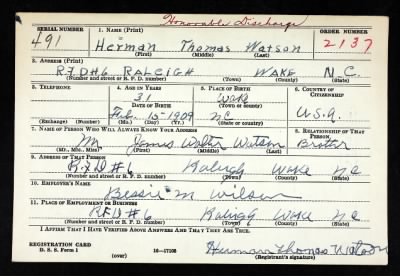 Honorable Discharge
SERIAL NUMBER 1. NAME (Print) ORDER NUMBER
491 Herman Thomas Watson 2137
(First) (Middle) (Last)
2. ADDRESS (Print)
RFD#6 RALEIGH WAKE N.C.
(Number and street or R. F. D. number) (Town) (County) (State)
3. TELEPHONE 4. AGE IN YEARS 5. PLACE OF BIRTH 6. COUNTRY OF CITIZENSHIP
31 Wake
DATE OF BIRTH (Town or county)
Feb. 15-1909 NC U.S.A.
(Exchange) (Number) (Mo.) (Day) (Yr.) (State or country)
7. NAME OF PERSON WHO WILL ALWAYS KNOW YOUR ADDRESS 8. RELATIONSHIP OF THAT PERSON
Mr James Walter Watson Brother
(Mr., Mrs., Miss) (First) (Middle) (Last)
9. ADDRESS OF THAT PERSON
RFD#6 Raleigh Wake NC
(Number and street or R. F. D. number) (Town) (County) (State)
10. EMPLOYER'S NAME
Bessie M Wilson
11. PLACE OF EMPLOYMENT OR BUSINESS
RFD#6 Raleigh Wake NC
(Number and street or R. F. D. number) (Town) (County) (State)
I AFFIRM THAT I HAVE VERIFIED ABOVE ANSWERS AND THAT THEY ARE TRUE.
REGISTRATION CARD
D. S. S. Form 1 16—17105 Herman Thomas Watson
(Registrant's signature)